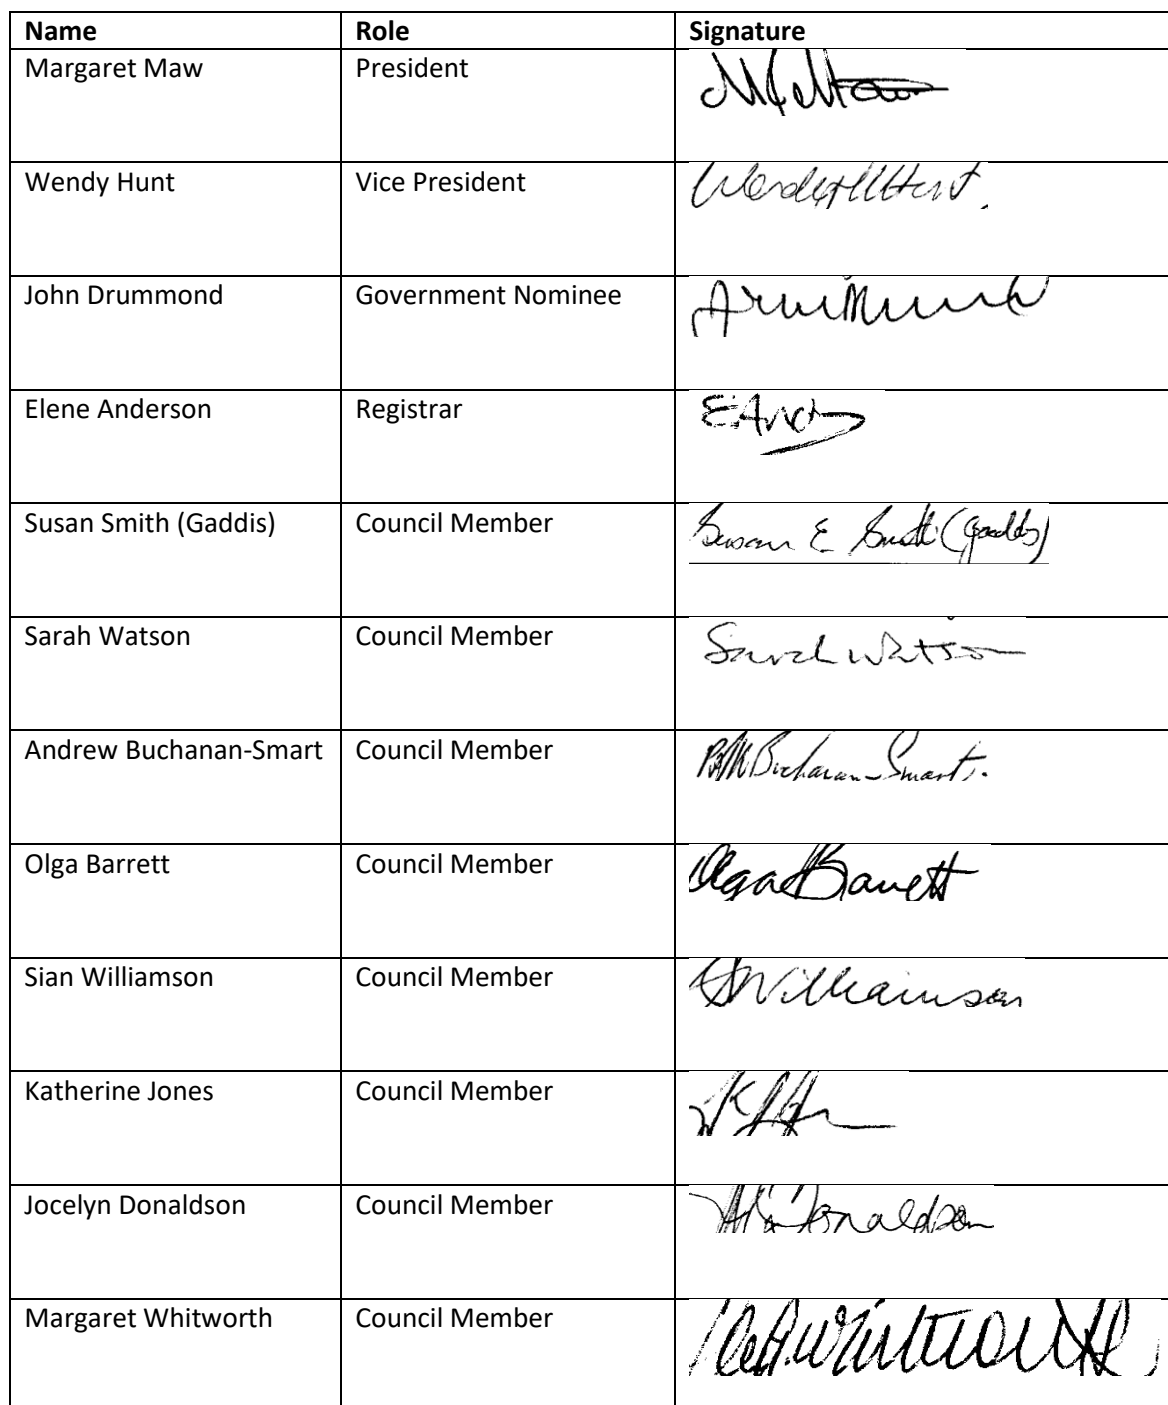 Name Role Signature
Margaret Maw President
Wendy Hunt Vice President
John Drummond Government Nominee
Elene Anderson Registrar
Susan Smith (Gaddis) Council Member Susan E Smith (Gaddis)
Sarah Watson Council Member Sarah Watson
Andrew Buchanan-Smart Council Member Buchanan-Smart.
Olga Barrett Council Member Olga Barrett
Sian Williamson Council Member Williamson
Katherine Jones Council Member
Jocelyn Donaldson Council Member Donaldson
Margaret Whitworth Council Member